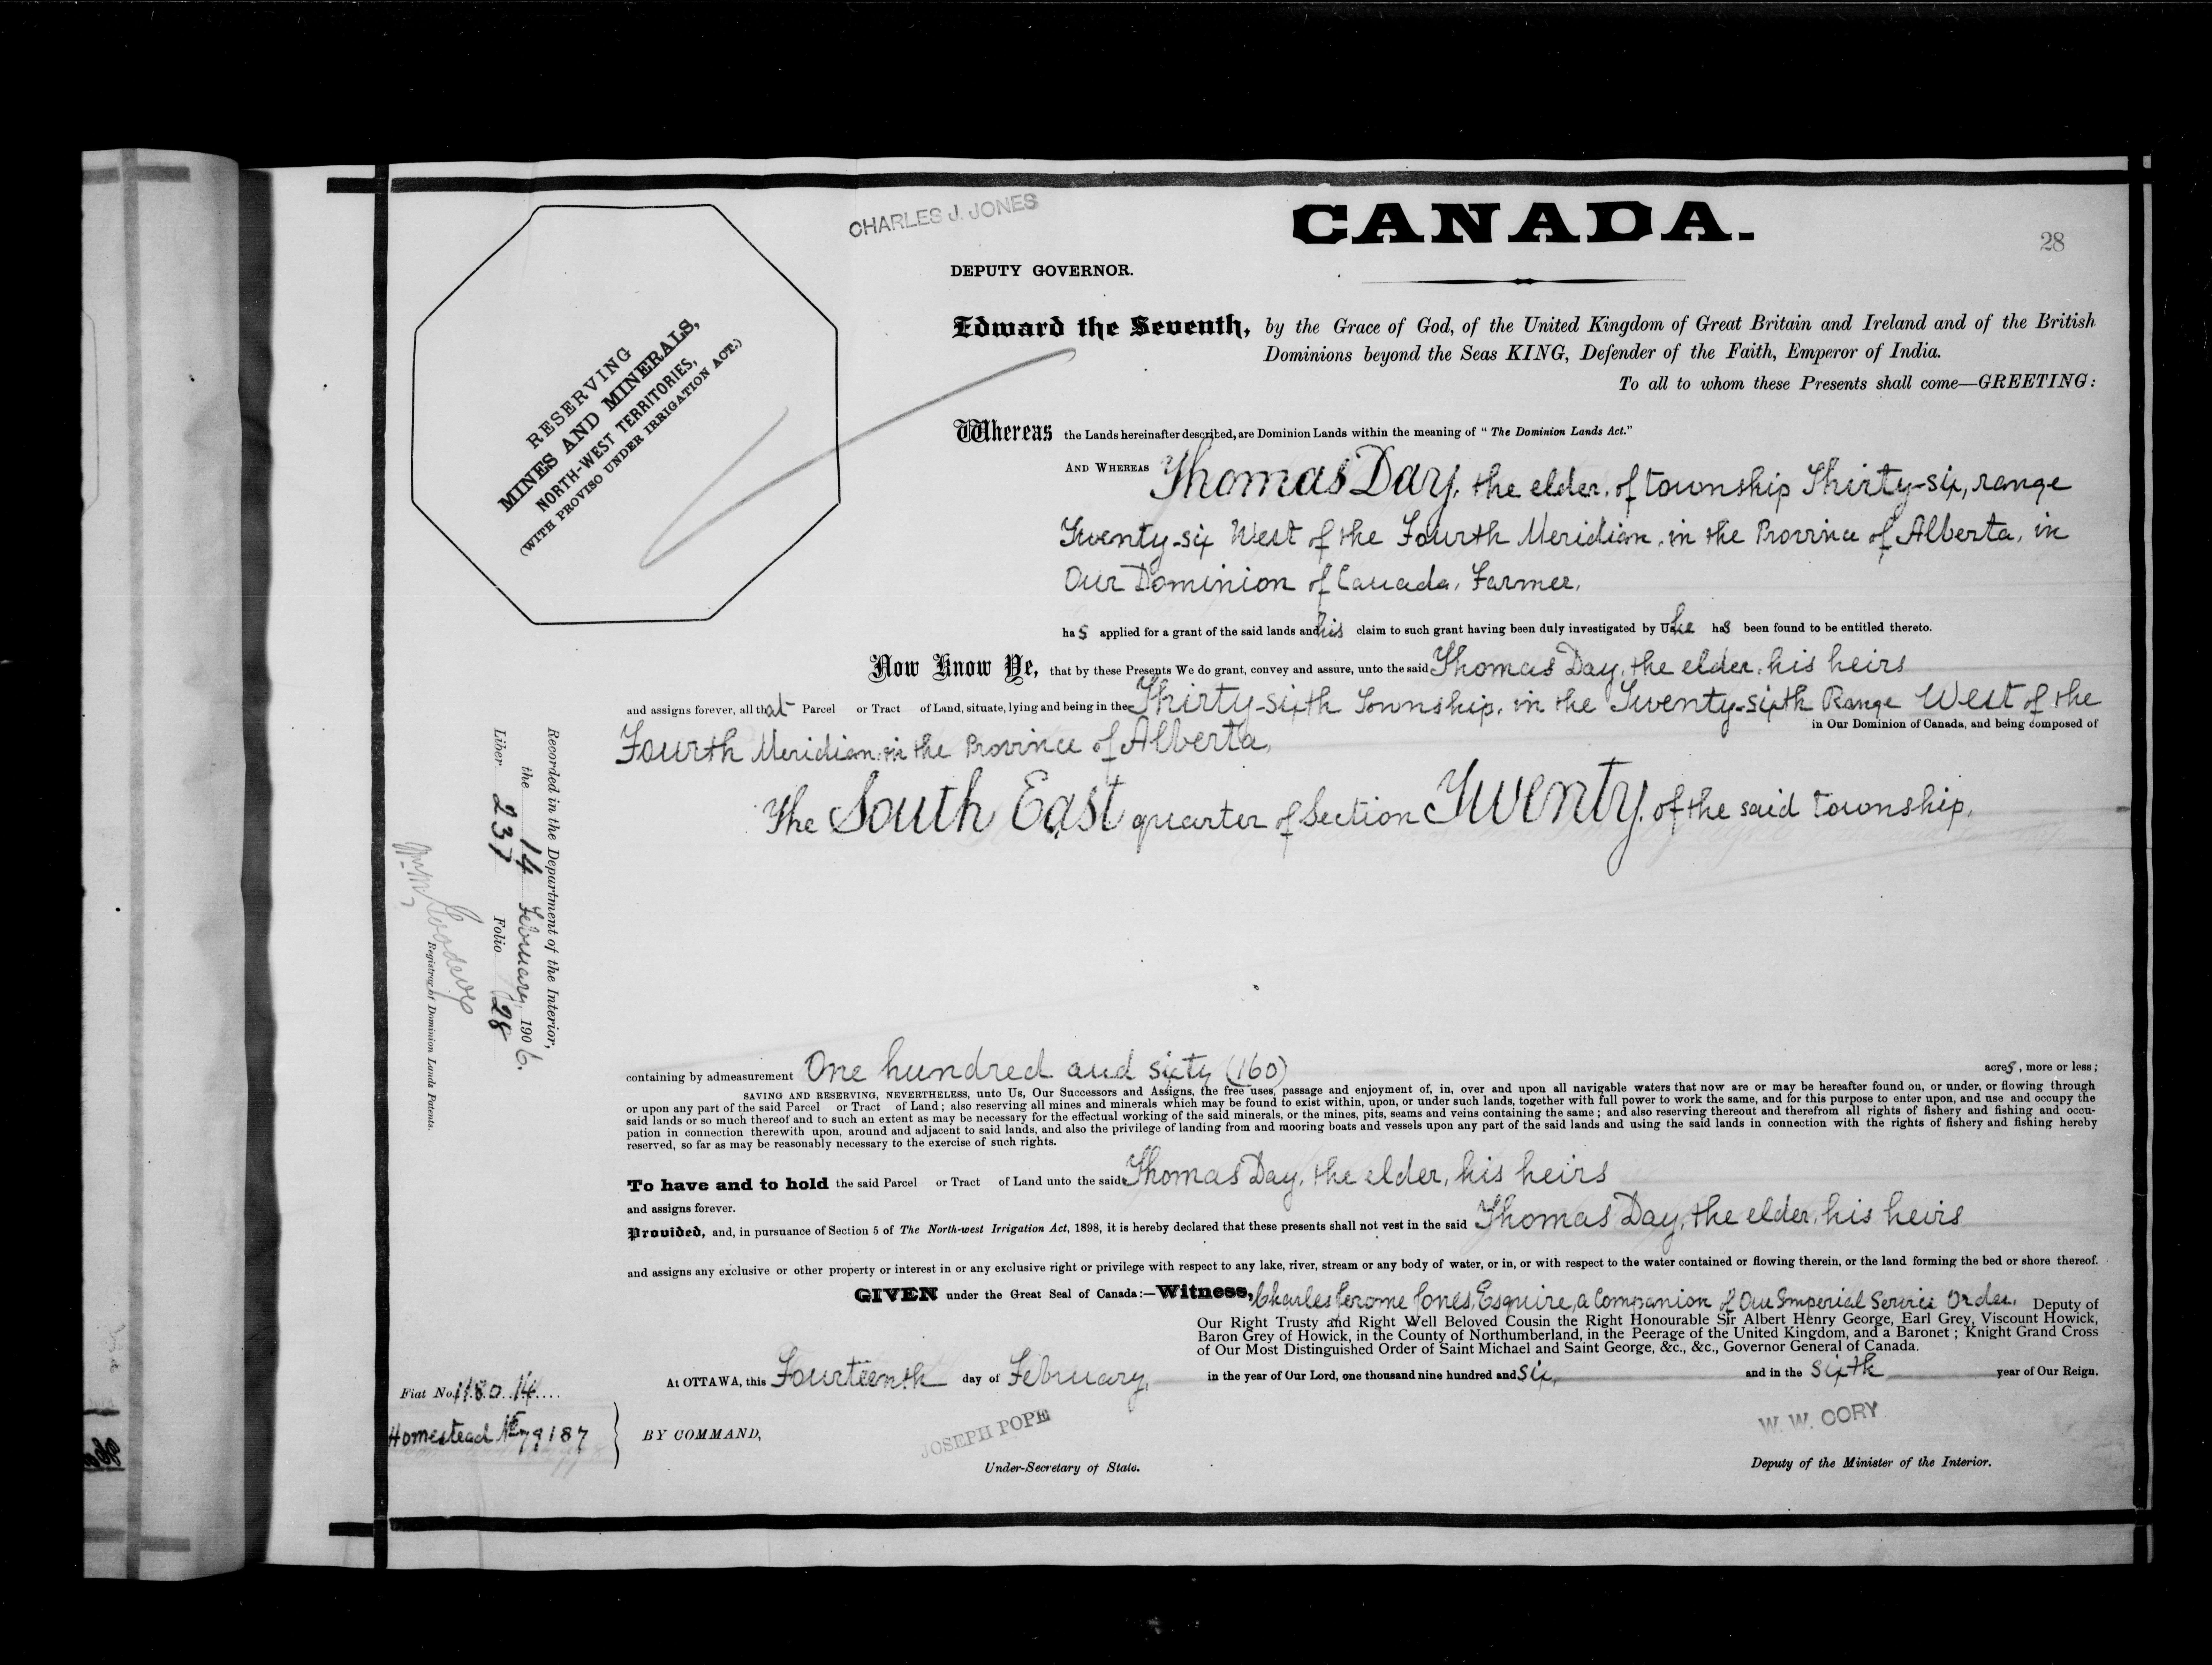 CHARLES J. JONES
CANADA.
28
DEPUTY GOVERNOR.
RESERVING
MINES AND MINERALS,
NORTH-WEST TERRITORIES,
(WITH PROVISO UNDER IRRIGATION ACT.)
Edward the Seventh, by the Grace of God, of the United Kingdom of Great Britain and Ireland and of the British
Dominions beyond the Seas KING, Defender of the Faith, Emperor of India.
To all to whom these Presents shall come—GREETING:
Whereas the Lands hereinafter described, are Dominion Lands within the meaning of "The Dominion Lands Act."
AND WHEREAS Thomas Day, the elder, of township Thirty-six, range
Twenty-six West of the Fourth Meridian, in the Province of Alberta, in
Our Dominion of Canada, Farmer,
has applied for a grant of the said lands and his claim to such grant having been duly investigated by Us he has been found to be entitled thereto.
Now Know Ye, that by these Presents We do grant, convey and assure, unto the said Thomas Day, the elder, his heirs
and assigns forever, all that Parcel or Tract of Land, situate, lying and being in the Thirty-sixth Township, in the Twenty-sixth Range West of the
in Our Dominion of Canada, and being composed of
Fourth Meridian, in the Province of Alberta,
The South East quarter of Section Twenty, of the said township,
Recorded in the Department of the Interior,
the 14 February, 1906.
Liber 237 Folio 28
Registrar of Dominion Lands Patents.
containing by admeasurement One hundred and sixty (160) acres, more or less;
SAVING AND RESERVING, NEVERTHELESS, unto Us, Our Successors and Assigns, the free uses, passage and enjoyment of, in, over and upon all navigable waters that now are or may be hereafter found on, or under, or flowing through
or upon any part of the said Parcel or Tract of Land; also reserving all mines and minerals which may be found to exist within, upon, or under such lands, together with full power to work the same, and for this purpose to enter upon, and use and occupy the
said lands or so much thereof and to such an extent as may be necessary for the effectual working of the said minerals, or the mines, pits, seams and veins containing the same; and also reserving thereout and therefrom all rights of fishery and fishing and occu-
pation in connection therewith upon, around and adjacent to said lands, and also the privilege of landing from and mooring boats and vessels upon any part of the said lands and using the said lands in connection with the rights of fishery and fishing hereby
reserved, so far as may be reasonably necessary to the exercise of such rights.
To have and to hold the said Parcel or Tract of Land unto the said Thomas Day, the elder, his heirs
and assigns forever.
Provided, and, in pursuance of Section 5 of The North-west Irrigation Act, 1898, it is hereby declared that these presents shall not vest in the said Thomas Day, the elder, his heirs
and assigns any exclusive or other property or interest in or any exclusive right or privilege with respect to any lake, river, stream or any body of water, or in, or with respect to the water contained or flowing therein, or the land forming the bed or shore thereof.
GIVEN under the Great Seal of Canada:—Witness, Charles Jerome Jones, Esquire, a Companion of Our Imperial Service Order, Deputy of
Our Right Trusty and Right Well Beloved Cousin the Right Honourable Sir Albert Henry George, Earl Grey, Viscount Howick,
Baron Grey of Howick, in the County of Northumberland, in the Peerage of the United Kingdom, and a Baronet; Knight Grand Cross
of Our Most Distinguished Order of Saint Michael and Saint George, &c., &c., Governor General of Canada.
At OTTAWA, this Fourteenth day of February, in the year of Our Lord, one thousand nine hundred and six, and in the sixth year of Our Reign.
Fiat No. 1180.14....
Homestead 79187
BY COMMAND,
JOSEPH POPE
Under-Secretary of State.
W. W. CORY
Deputy of the Minister of the Interior.